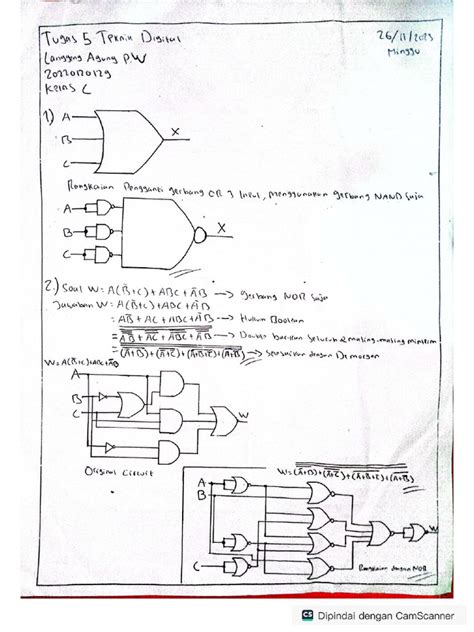 Tugas 5 Teknik Digital
26/11/2023
Minggu
Langgeng Agung P.W
20220120129
Kelas C
1) A
B
C
X
Rangkaian Pengganti gerbang OR 3 Input, menggunakan gerbang NAND Saja
A
B
C
X
2.) Soal W = A(B̅+C) + ABC + A̅B̅ → gerbang NOR Saja
Jawaban W = A(B̅+C) + ABC + A̅B̅
= AB̅ + AC + ABC + A̅B̅ → Hukum Boolean
→ Double barkan Seluruh & masing-masing minterm
→ Sesuaikan dengan Demorgan
W = A(B̅+C)+ABC+A̅B̅
A
B
C
W
Original Circuit
A
B
C
W
Rangkaian dengan NOR
CS Dipindai dengan CamScanner